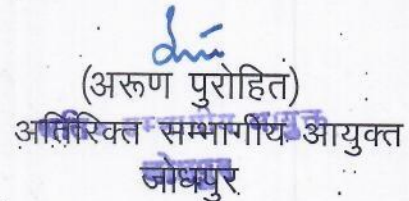 (अरुण पुरोहित)
अतिरिक्त सम्भागीय आयुक्त
जोधपुर